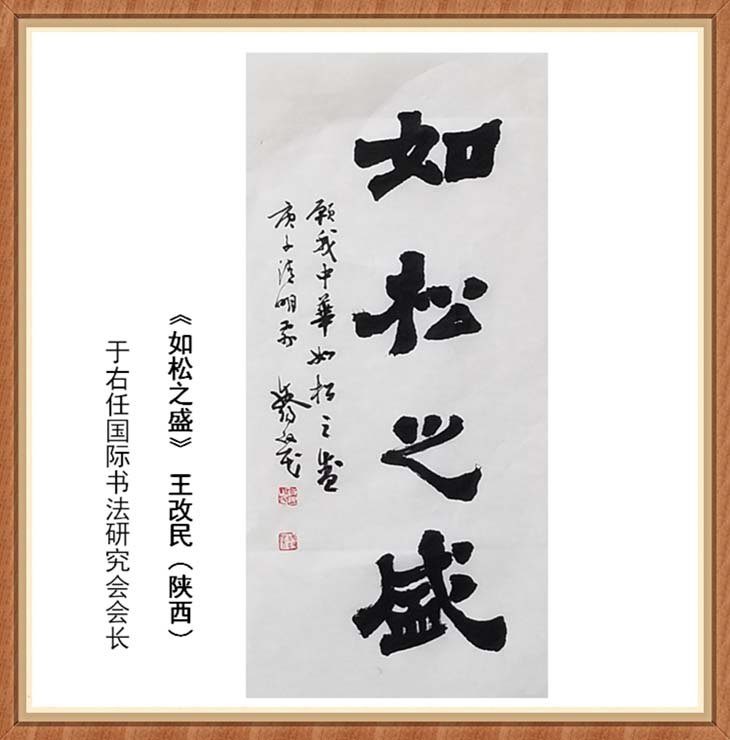 如松之盛
願我中華如松之盛
庚子清明 改民
《如松之盛》 王改民（陕西）
于右任国际书法研究会会长